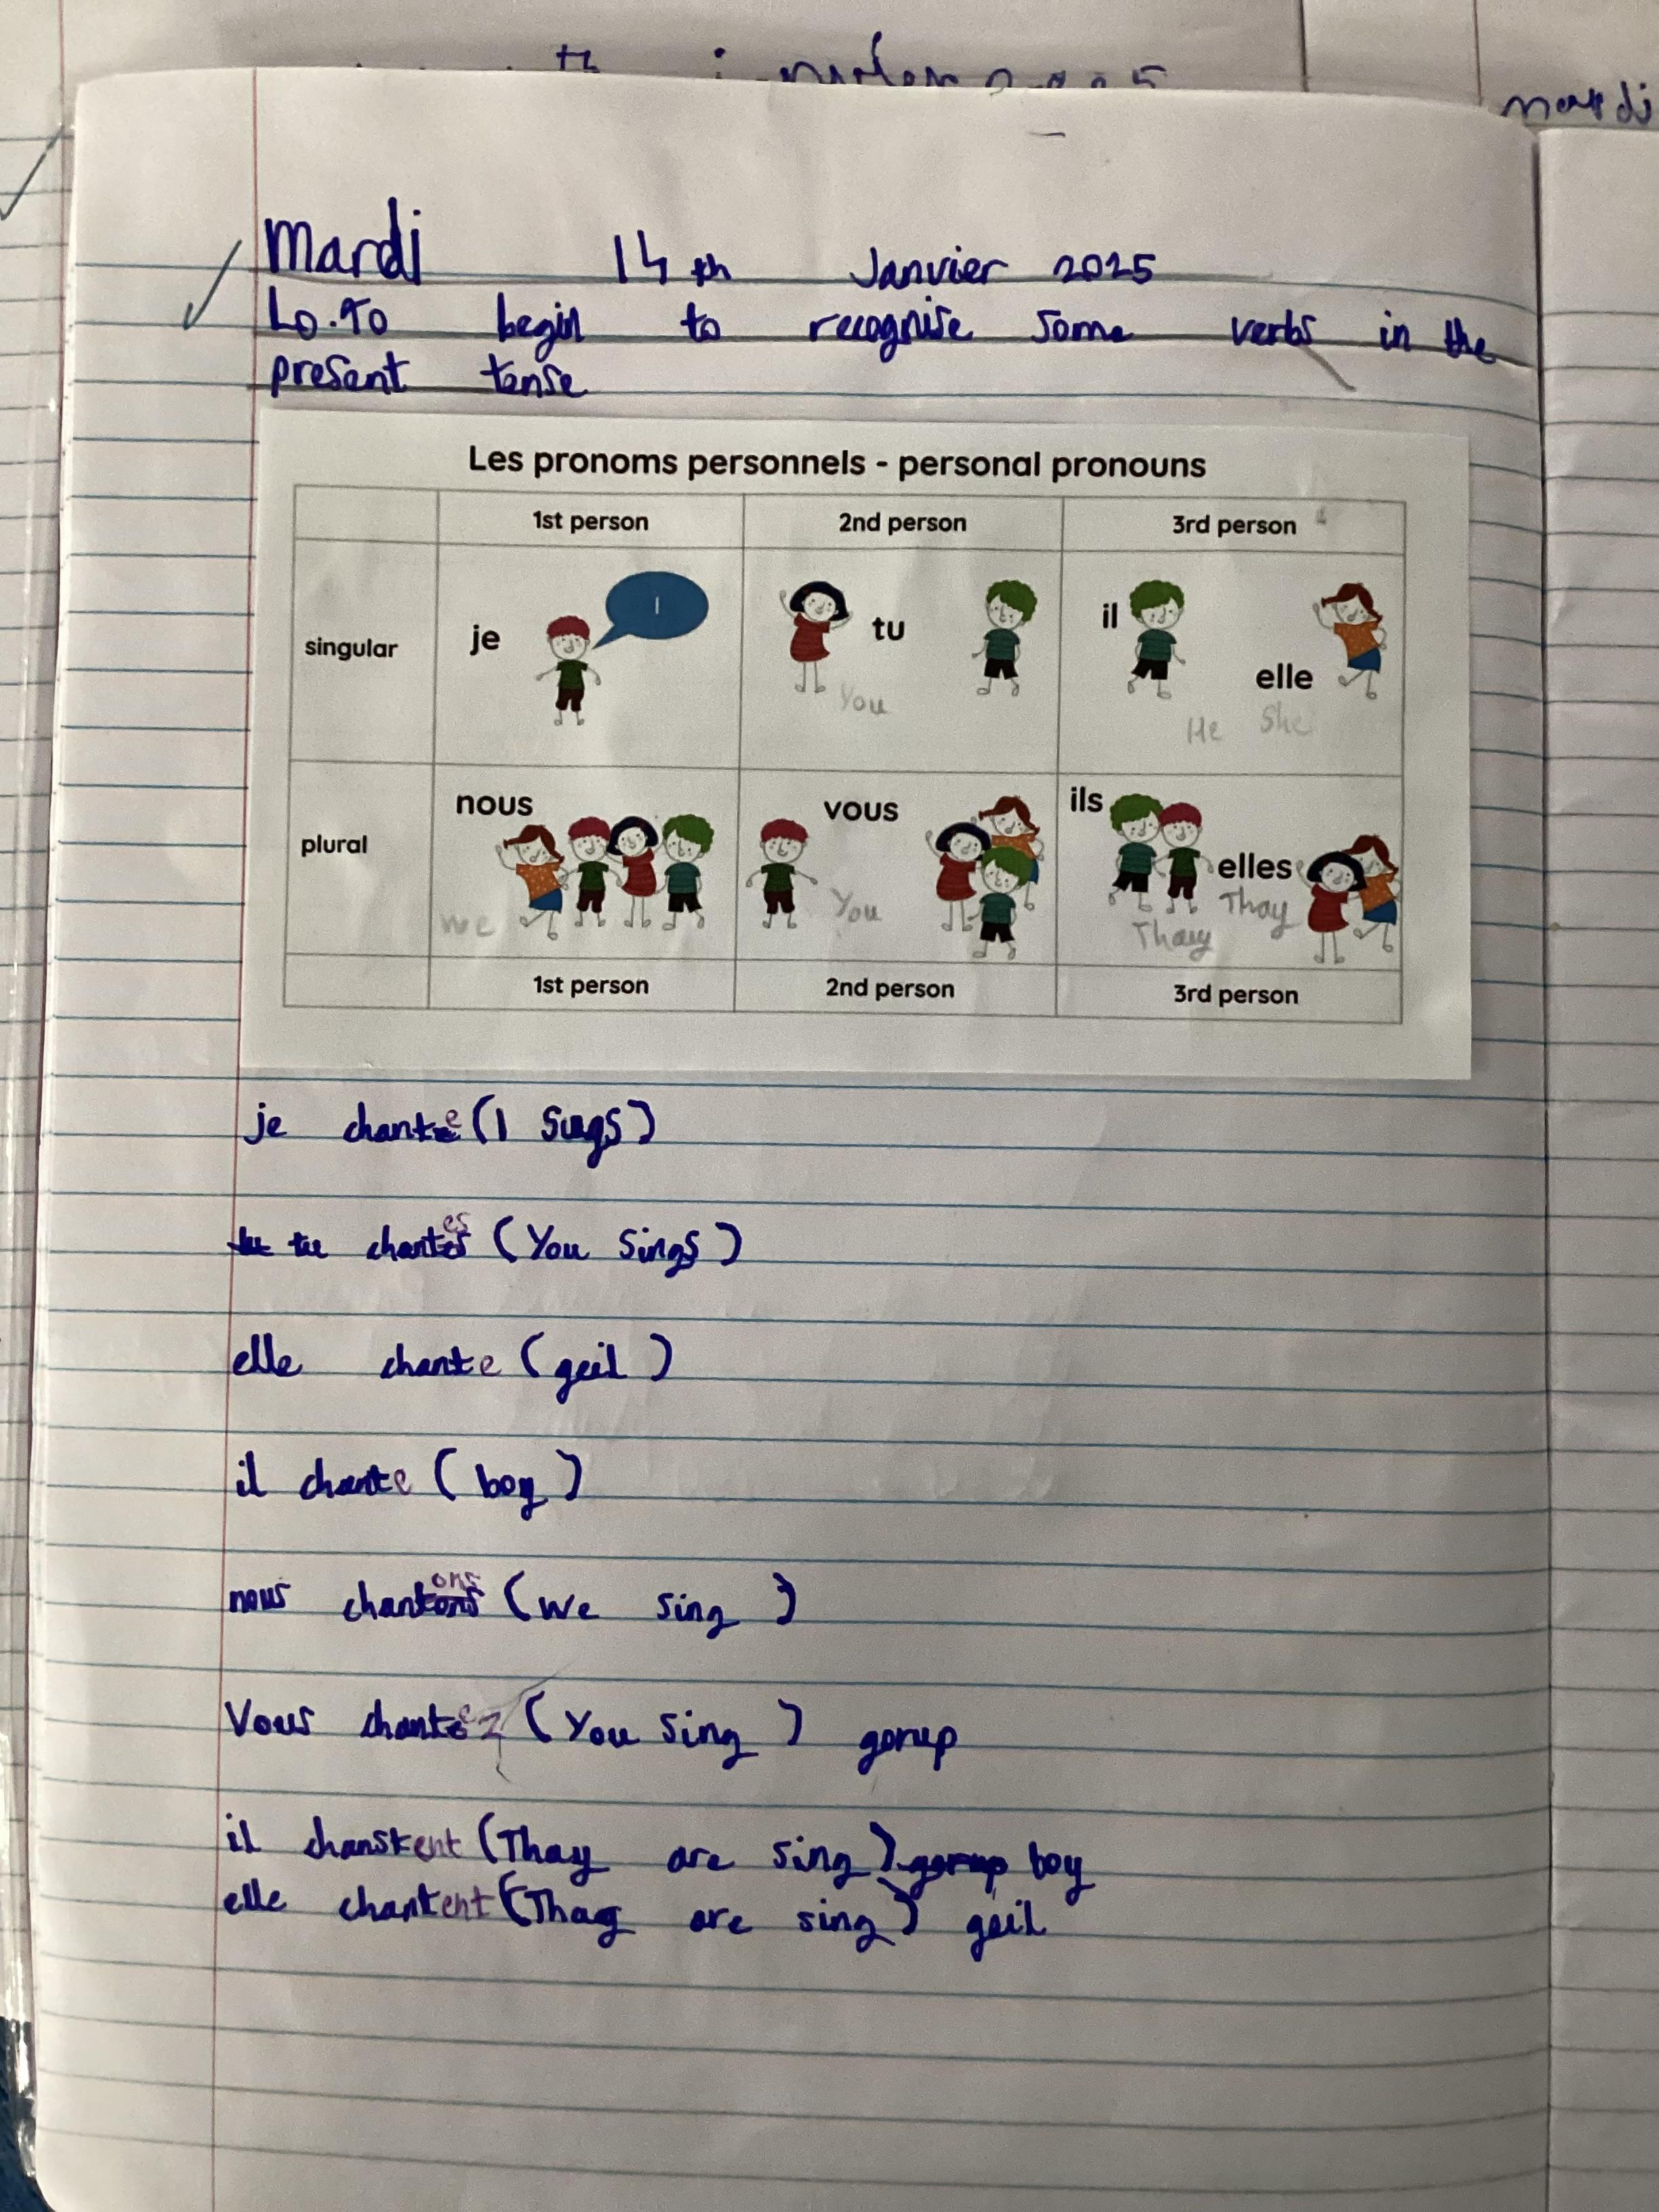 mardi
Mardi 14th Janvier 2025
Lo.To begin to recognise some verbs in the
present tense
Les pronoms personnels - personal pronouns
1st person 2nd person 3rd person
singular je I tu You il He elle She
plural nous We vous You ils Thay elles Thay
1st person 2nd person 3rd person
je chante (I Sings)
tu chantes (You Sings)
elle chante (geil)
il chante (boy)
nous chantons (We sing)
Vous chantez (You sing) gorup
il chanstent (Thay are sing) gorup boy
elle chantent (Thay are sing) geil